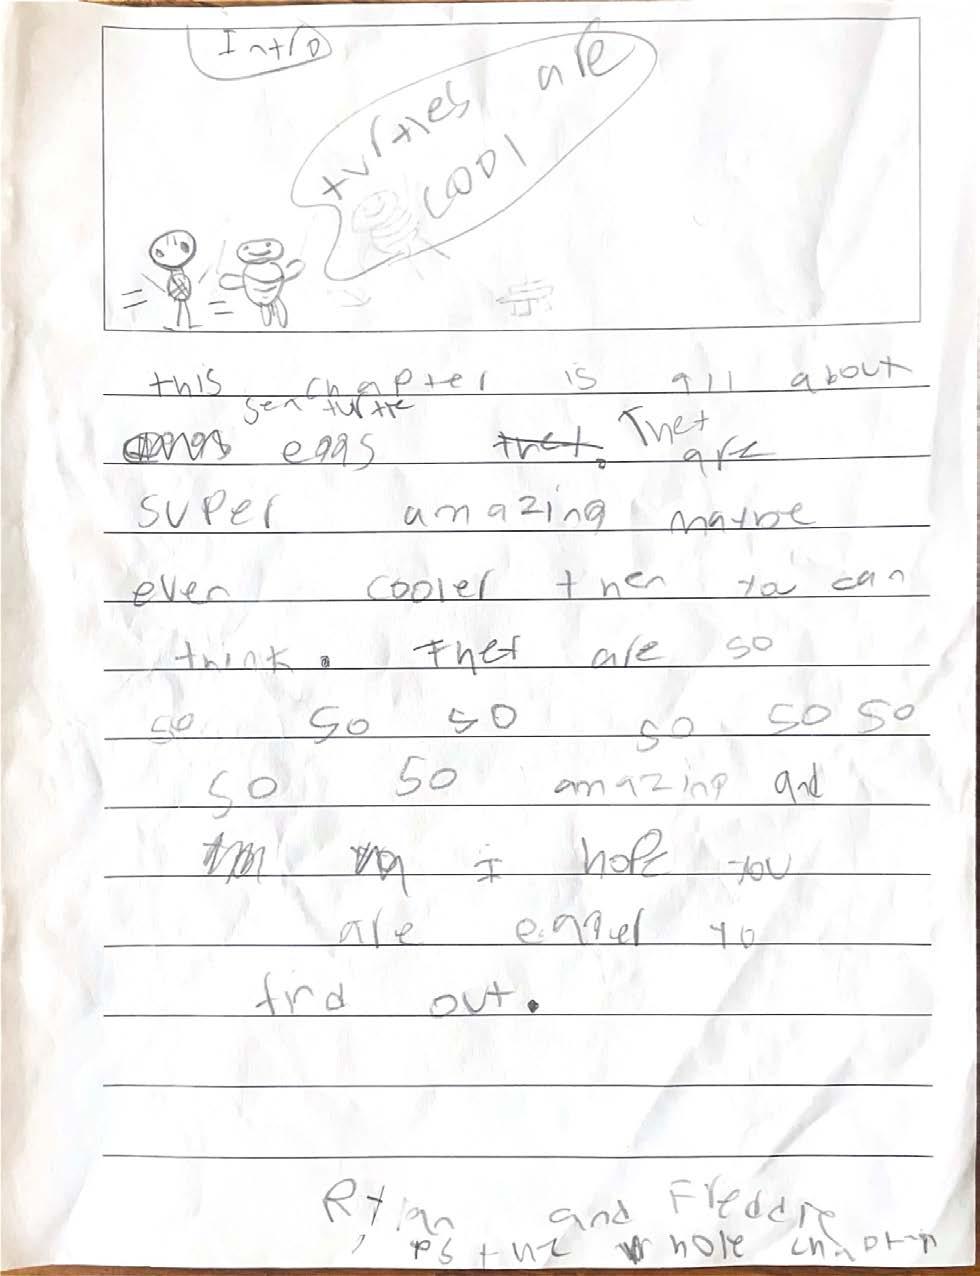 Intro
turtles are
cool
this chapter is all about
sea turtle
eggs thet. Thet are
super amazing maybe
even cooler then you can
think. Thet are so
so so so so so so
so so amazing and
I hope you
are eager to
find out.
Rylan and Freddie
PS the whole chapter